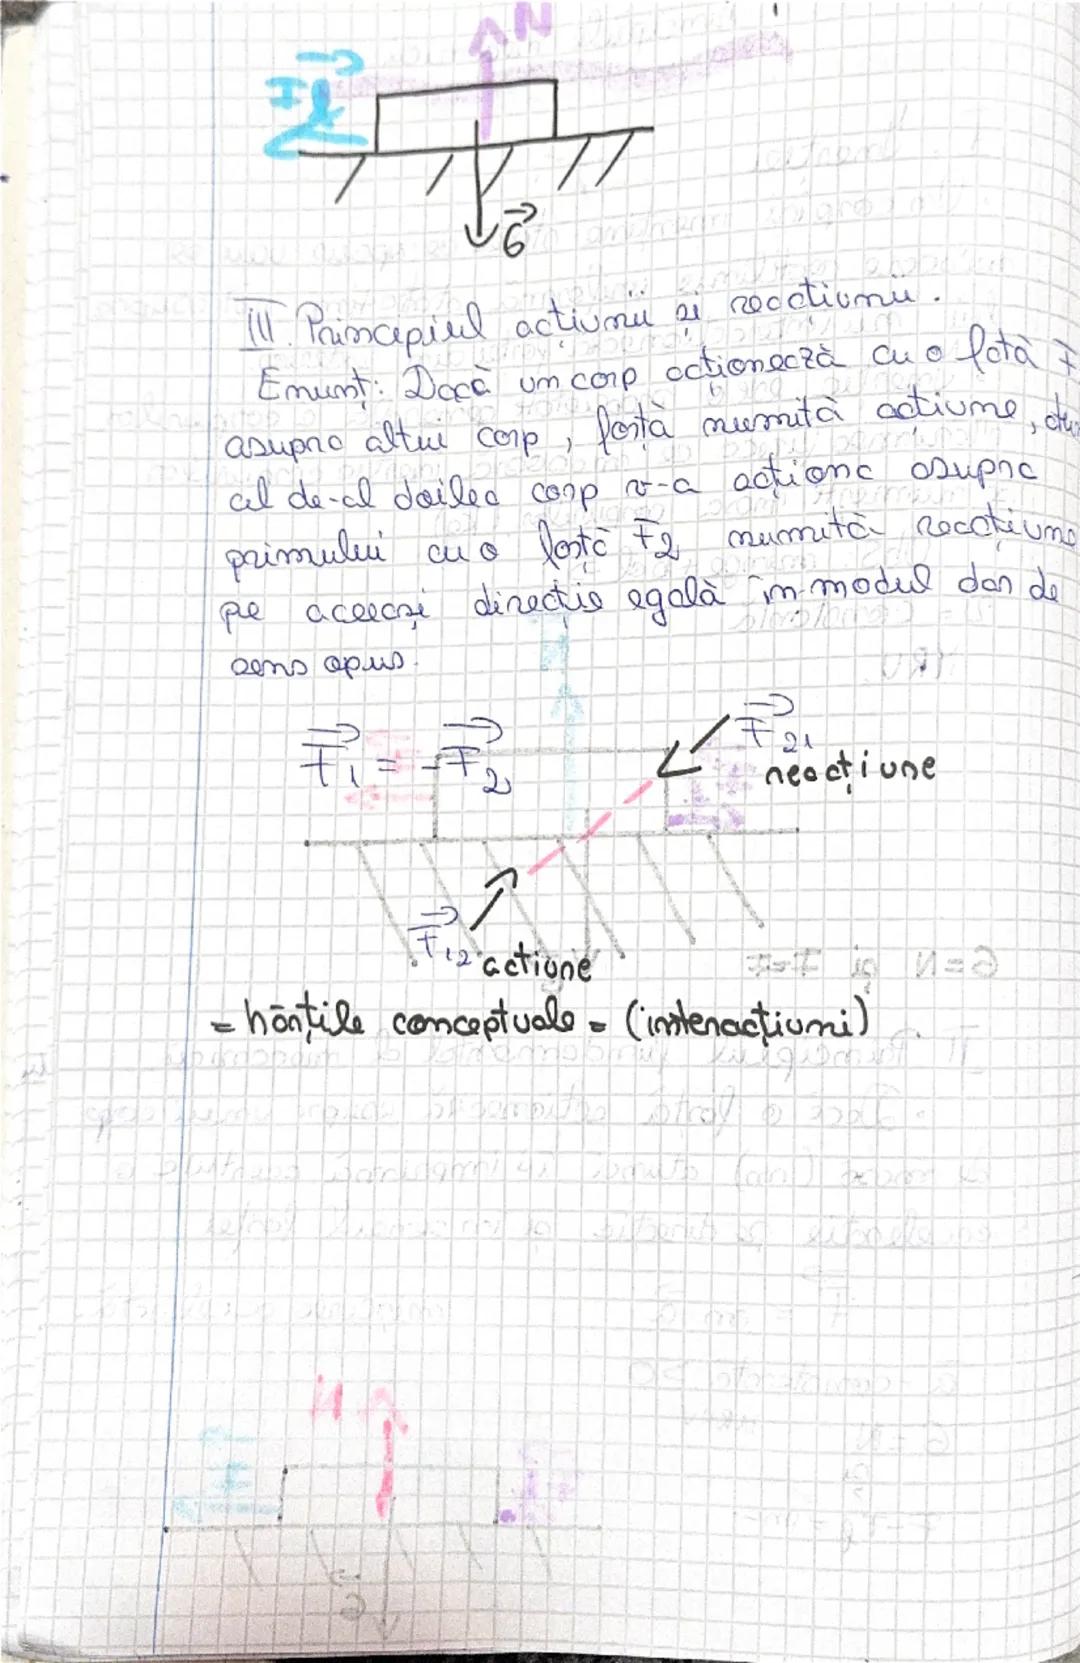 N
G
III. Principiul acțiunii și reacțiunii.
Enunț: Dacă un corp acționează cu o fotă F
asupra altui corp, forță numită acțiune,
al de-al doilea corp v-a acționa asupra
primului cu o forță F2 numită reacțiune
pe aceeași direcție egală în modul dar de
sens opus.
F1 = -F2
F21
reacțiune
F12
acțiune
= hărțile conceptuale = (interacțiuni)